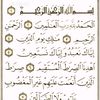 بِسْمِ ٱللَّهِ ٱلرَّحْمَٰنِ ٱلرَّحِيمِ
ٱلْحَمْدُ لِلَّهِ رَبِّ ٱلْعَٰلَمِينَ
ٱلرَّحْمَٰنِ ٱلرَّحِيمِ مَٰلِكِ يَوْمِ ٱلدِّينِ
إِيَّاكَ نَعْبُدُ وَإِيَّاكَ نَسْتَعِينُ
ٱهْدِنَا ٱلصِّرَٰطَ ٱلْمُسْتَقِيمَ صِرَٰطَ
ٱلَّذِينَ أَنْعَمْتَ عَلَيْهِمْ غَيْرِ ٱلْمَغْضُوبِ
عَلَيْهِمْ وَلَا ٱلضَّآلِّينَ